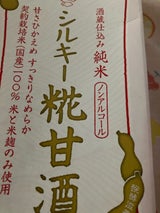 酒蔵仕込み 純米
ノンアルコール
シルキー糀甘酒
甘さひかえめ すっきりなめらか
契約栽培米(国産)100% 米と米麹のみ使用